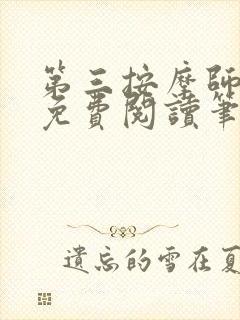 第三按摩師
免費閱讀筆
遺忘的雪在夏